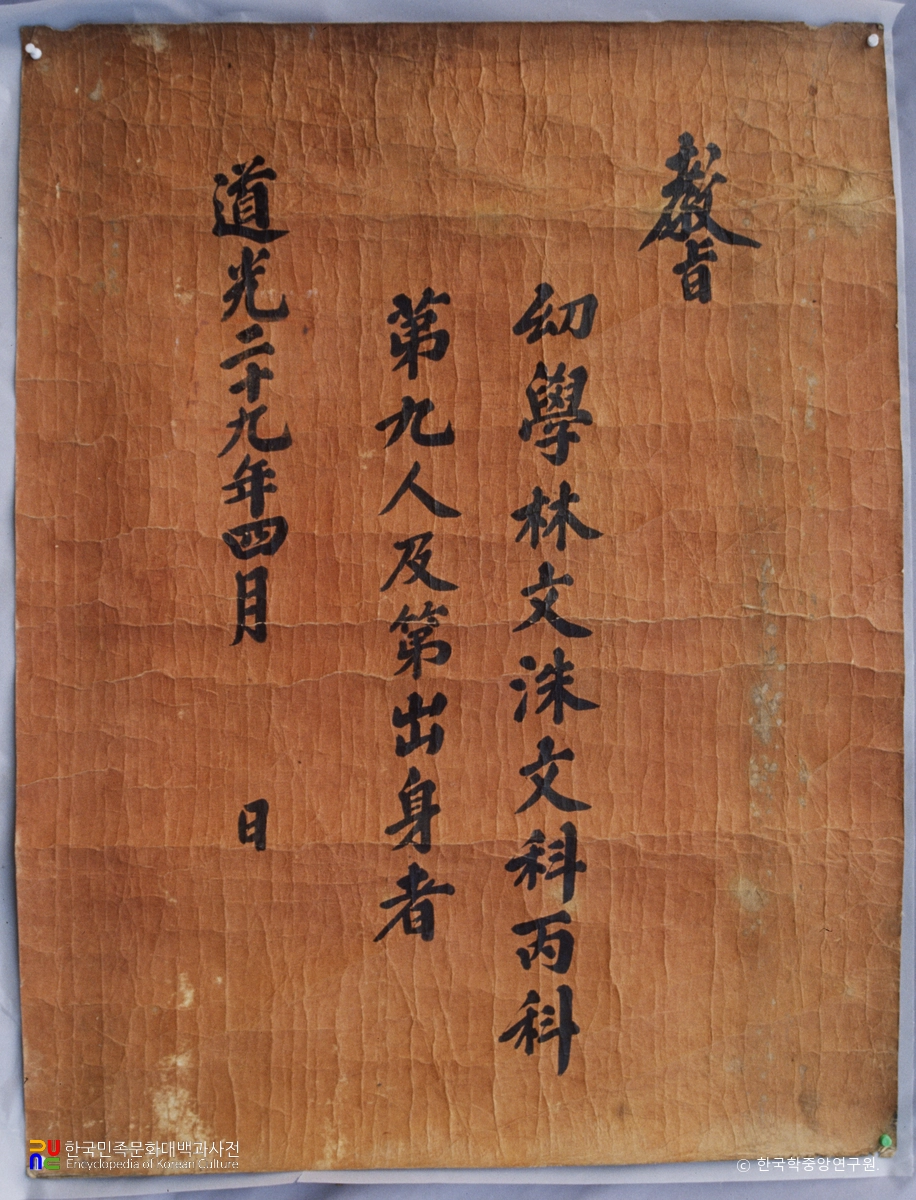 教旨
幼學林文洙文科丙科
第九人及第出身者
道光二十九年四月 日
한국민족문화대백과사전
Encyclopedia of Korean Culture
© 한국학중앙연구원